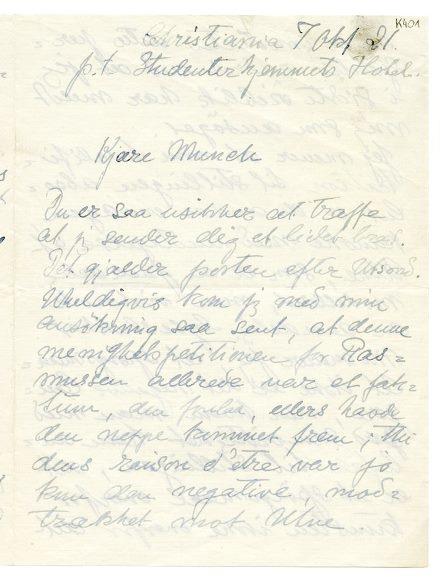 K401
Christiania 7 okt 21.
p.t. Studenterhjemmets Hotel.
Kjære Munch
Du er saa usikker at træffe
at j. sender dig et lidet brev.
Det gjælder posten efter
Uheldigvis kom jeg med min
ansökning saa sent, at denne
menighetspetitionen for Ras=
mussen allerede var et fak=
tum, den ellers havde
den neppe kommet frem; thi
dens raison d'être var jo
kun den negative, mod=
trækket mot Utne